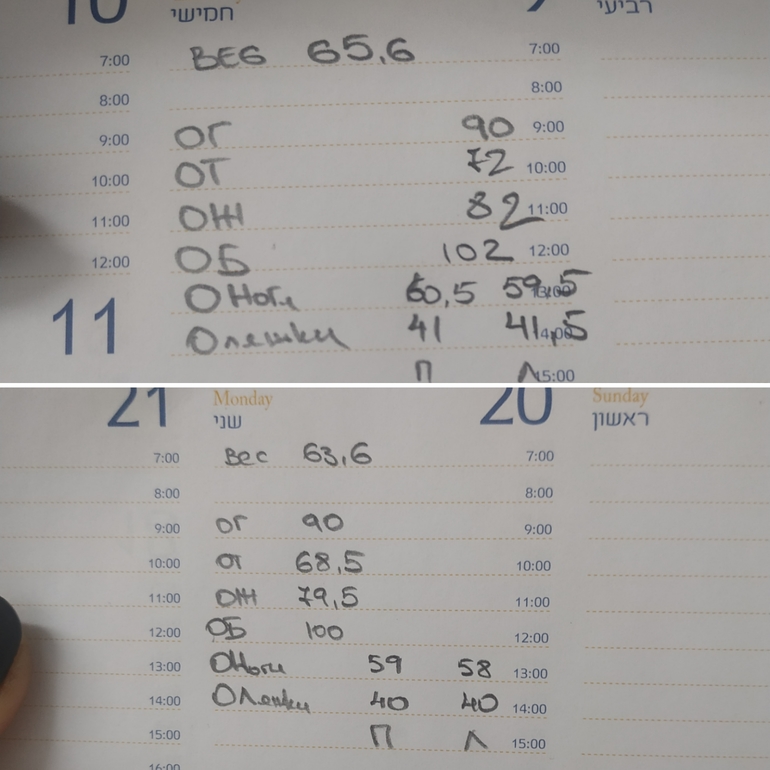 10 חמישי 9 רביעי
7:00 ВЕС 65,6 7:00
8:00 8:00
9:00 ОГ 90 9:00
10:00 ОТ 72 10:00
11:00 ОЖ 82 11:00
12:00 ОБ 102 12:00
О Ноги 60,5 59,5
11 О ляшки 41 41,5
П Л 15:00
21 Monday 20 Sunday
שני ראשון
7:00 Вес 63,6 7:00
8:00 8:00
9:00 ОГ 90 9:00
10:00 ОТ 68,5 10:00
11:00 ОЖ 79,5 11:00
12:00 ОБ 100 12:00
13:00 О Ноги 59 58 13:00
14:00 О Ляшки 40 40 14:00
15:00 П Л 15:00
16:00